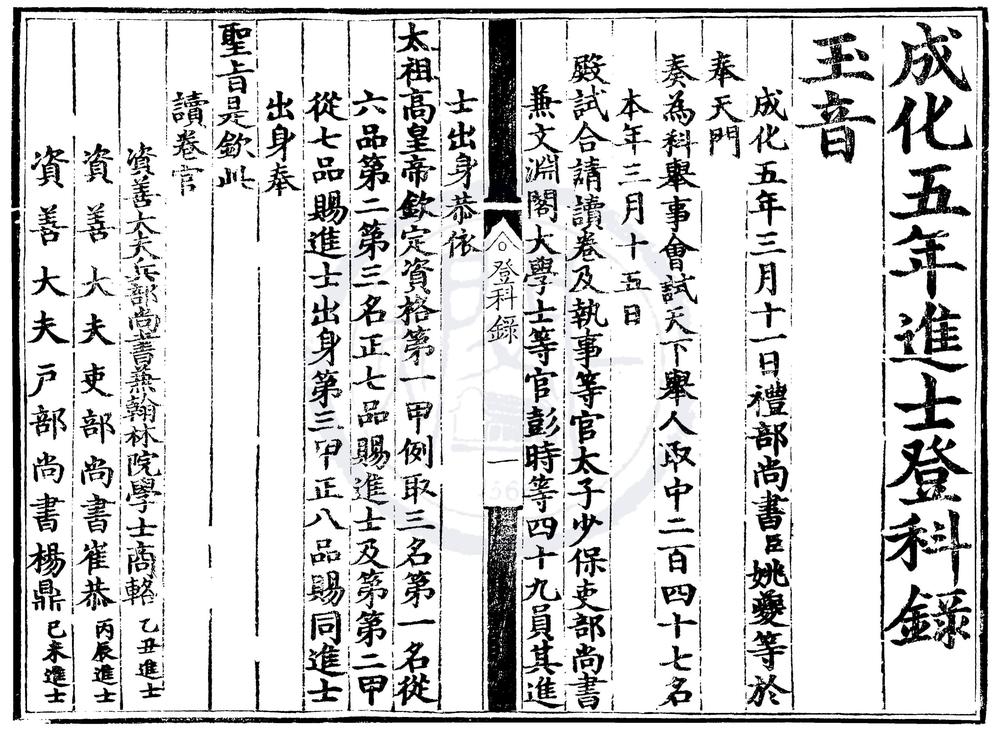 成化五年進士登科錄
玉音
成化五年三月十一日禮部尚書臣姚夔等於
奉天門
奏為科舉事會試天下舉人取中二百四十七名
本年三月十五日
殿試合請讀卷及執事等官太子少保吏部尚書
兼文淵閣大學士等官彭時等四十九員其進
登科錄
一
士出身恭依
太祖高皇帝欽定資格第一甲例取三名第一名從
六品第二第三名正七品賜進士及第第二甲
從七品賜進士出身第三甲正八品賜同進士
出身奉
聖旨是欽此
讀卷官
資善大夫兵部尚書兼翰林院學士商輅 乙丑進士
資善大夫吏部尚書崔恭 丙辰進士
資善大夫戶部尚書楊鼎 己未進士